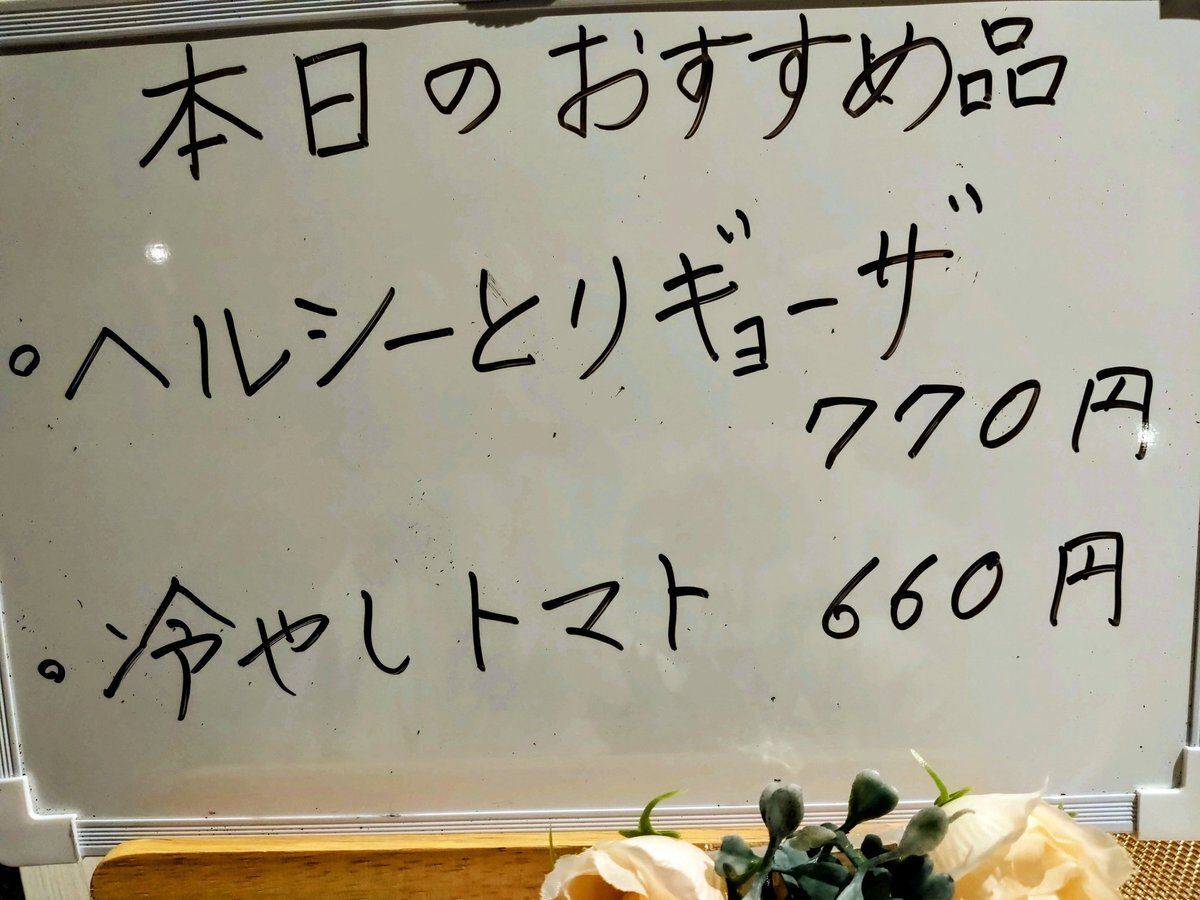 本日のおすすめ品
。ヘルシーとりギョーザ
770円
。冷やしトマト 660円